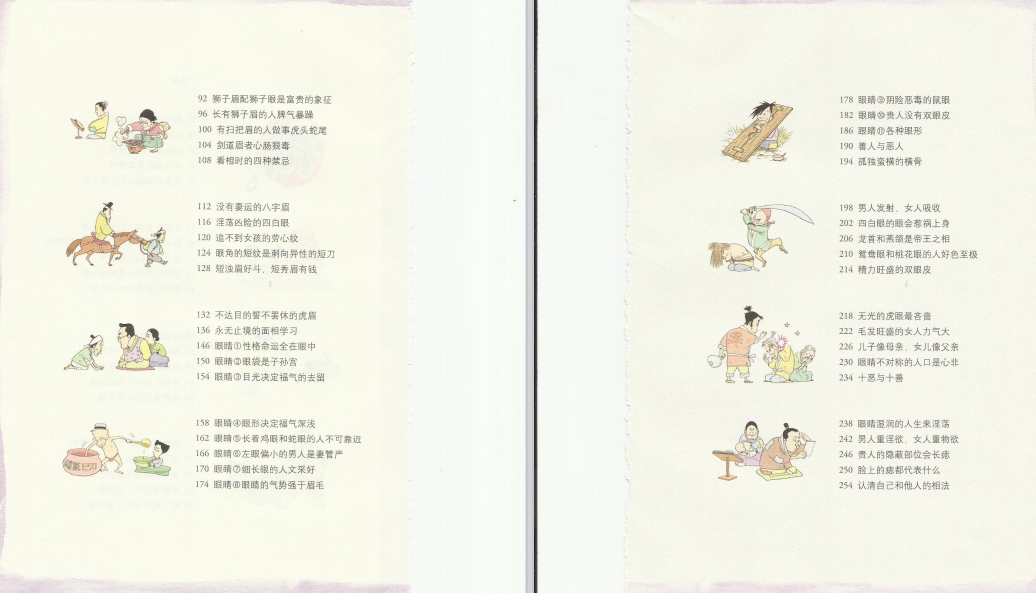 92 狮子眉配狮子眼是富贵的象征
96 长有狮子眉的人脾气暴躁
100 有扫把眉的人做事虎头蛇尾
104 剑道眉者心肠狠毒
108 看相时的四种禁忌
112 没有妻运的八字眉
116 淫荡凶险的四白眼
120 追不到女孩的劳心纹
124 眼角的短纹是刺向异性的短刀
128 短浊眉好斗、短秀眉有钱
132 不达目的誓不罢休的虎眉
136 永无止境的面相学习
146 眼睛①性格命运全在眼中
150 眼睛②眼袋是子孙宫
154 眼睛③目光决定福气的去留
158 眼睛④眼形决定福气深浅
162 眼睛⑤长着鸡眼和蛇眼的人不可靠近
166 眼睛⑥左眼偏小的男人是妻管严
170 眼睛⑦细长眼的人文采好
174 眼睛⑧眼睛的气势强于眉毛
178 眼睛⑨阴险恶毒的鼠眼
182 眼睛⑩贵人没有双眼皮
186 眼睛⑪各种眼形
190 善人与恶人
194 孤独蛮横的横骨
198 男人发射、女人吸收
202 四白眼的眼会惹祸上身
206 龙首和燕颌是帝王之相
210 鸳鸯眼和桃花眼的人好色至极
214 精力旺盛的双眼皮
218 无光的虎眼最吝啬
222 毛发旺盛的女人力气大
226 儿子像母亲、女儿像父亲
230 眼睛不对称的人口是心非
234 十恶与十善
238 眼睛湿润的人生来淫荡
242 男人重淫欲、女人重物欲
246 贵人的隐蔽部位会长痣
250 脸上的痣都代表什么
254 认清自己和他人的相法